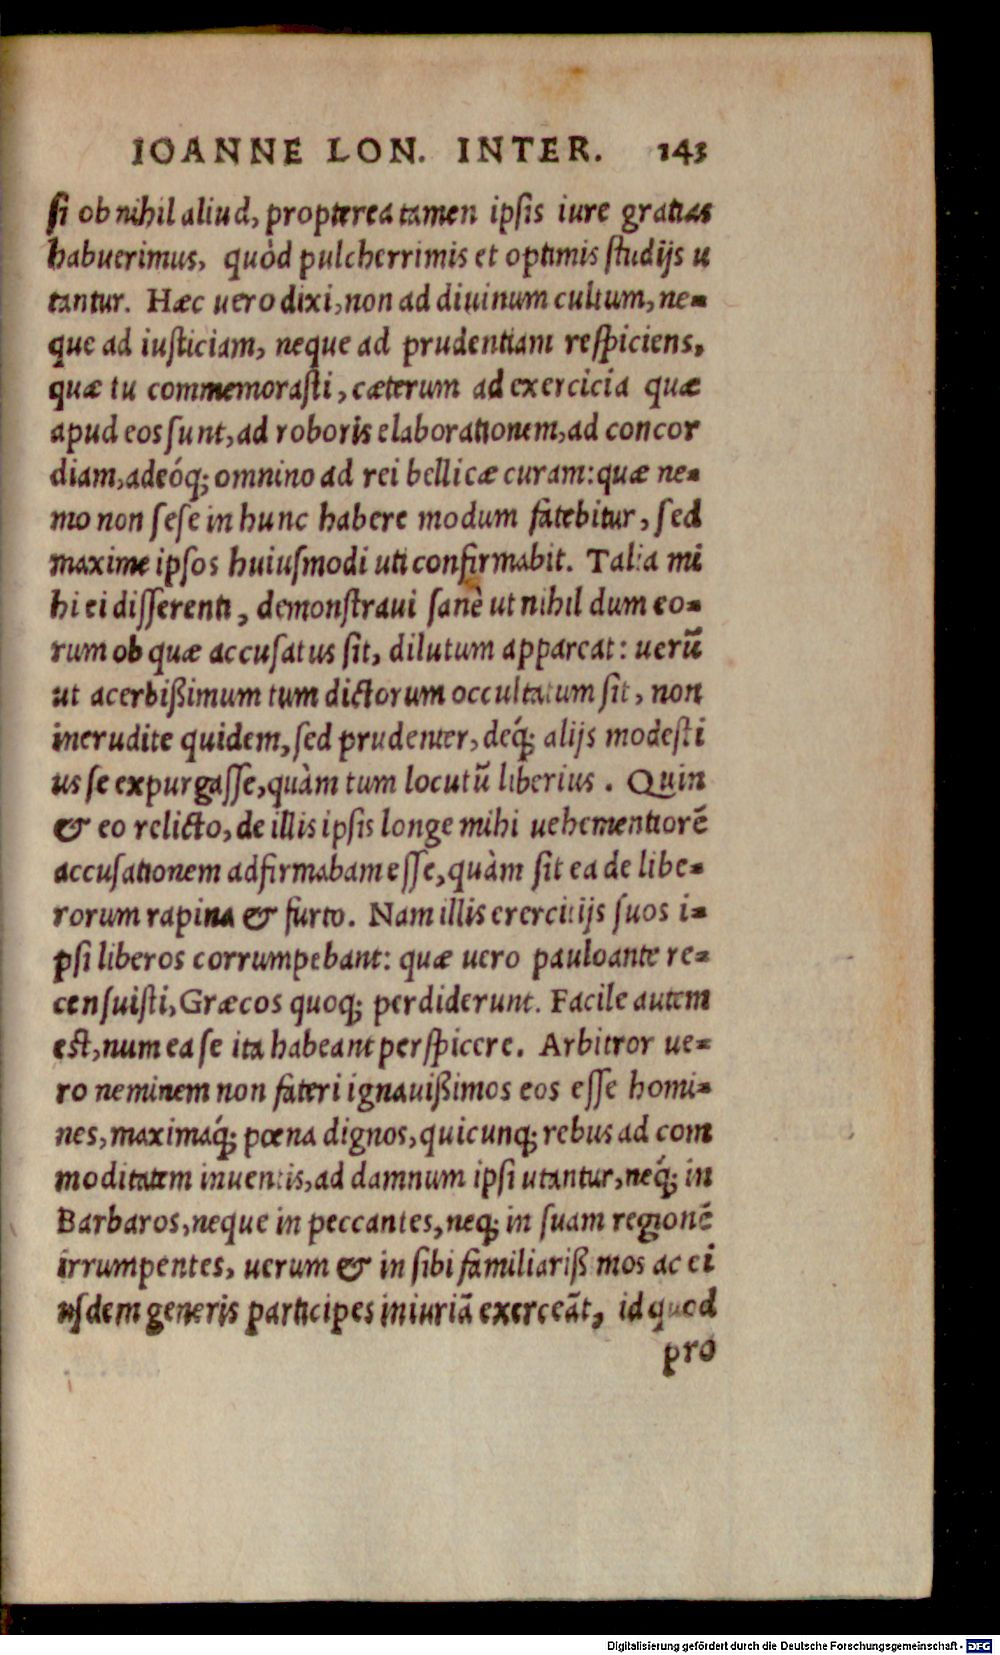 IOANNE LON. INTER. 143
si ob nihil aliud, propterea tamen ipsis iure gratias
habuerimus, quòd pulcherrimis et optimis studijs u
tantur. Hæc uero dixi, non ad diuinum cultum, ne=
que ad iusticiam, neque ad prudentiam respiciens,
quæ tu commemorasti, cæterum ad exercicia quæ
apud eos sunt, ad roboris elaborationem, ad concor
diam, adeóq; omnino ad rei bellicæ curam: quæ ne=
mo non sese in hunc habere modum fatebitur, sed
maxime ipsos huiusmodi uti confirmabit. Talia mi
hi ei disserenti, demonstraui sanè ut nihil dum eo=
rum ob quæ accusatus sit, dilutum appareat: uerū
ut acerbißimum tum dictorum occultatum sit, non
inerudite quidem, sed prudenter, déq; alijs modesti
us se expurgasse, quàm tum locutū liberius. Quin
& eo relicto, de illis ipsis longe mihi uehementiorē
accusationem adfirmabam esse, quàm sit ea de libe=
rorum rapina & furto. Nam illis exercitijs suos i=
psi liberos corrumpebant: quæ uero pauloante re=
censuisti, Græcos quoq; perdiderunt. Facile autem
est, num ea se ita habeant perspicere. Arbitror ue=
ro neminem non fateri ignauißimos eos esse homi=
nes, maximáq; pœna dignos, quicunq; rebus ad com
moditatem inuentis, ad damnum ipsi utantur, néq; in
Barbaros, neque in peccantes, neq; in suam regionē
irrumpentes, uerum & in sibi familiarißimos ac ei
usdem generis participes iniuriā exerceāt, id quod
pro
Digitalisierung gefördert durch die Deutsche Forschungsgemeinschaft - DFG